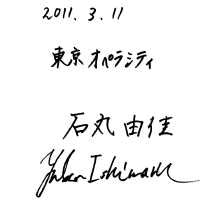 2011. 3. 11
東京オペラシティ
石丸由佳
Yuka Ishimaru